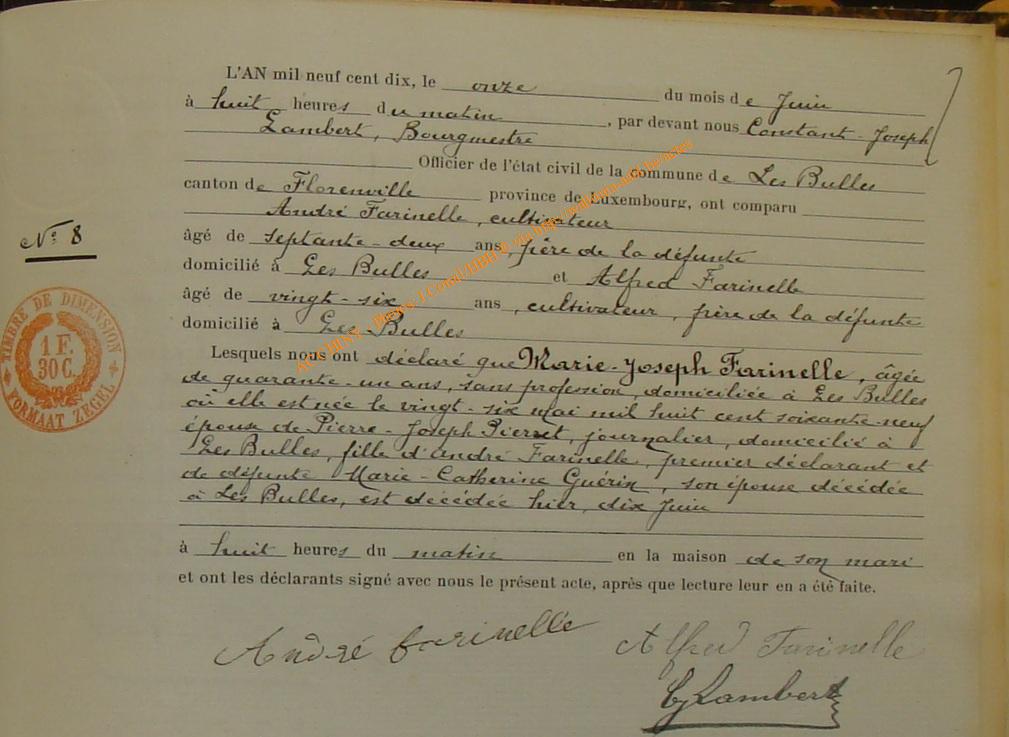 L'AN mil neuf cent dix, le onze du mois de Juin
à huit heures du matin, par devant nous Constant-Joseph
Lambert, Bourgmestre
Officier de l'état civil de la commune de Les Bulles
canton de Florenville province de Luxembourg, ont comparu
André Farinelle, cultivateur
âgé de septante-deux ans, père de la défunte
domicilié à Les Bulles et Alfred Farinelle
âgé de vingt-six ans, cultivateur, frère de la défunte
domicilié à Les Bulles
N° 8
TIMBRE DE DIMENSION
1 F.
30 C.
FORMAAT ZEGEL
Lesquels nous ont déclaré que Marie-Joseph Farinelle, âgée
de quarante-un ans, sans profession, domiciliée à Les Bulles
où elle est née le vingt-six mai mil huit cent soixante-neuf
épouse de Pierre-Joseph Pierret, journalier, domicilié à
Les Bulles, fille d'andré Farinelle, premier déclarant et
de défunte Marie-Catherine Guérin, son épouse décédée
à Les Bulles, est décédée hier, dix Juin
à huit heures du matin en la maison de son mari
et ont les déclarants signé avec nous le présent acte, après que lecture leur en a été faite.
André farinelle Alfred Farinelle
CJ Lambert